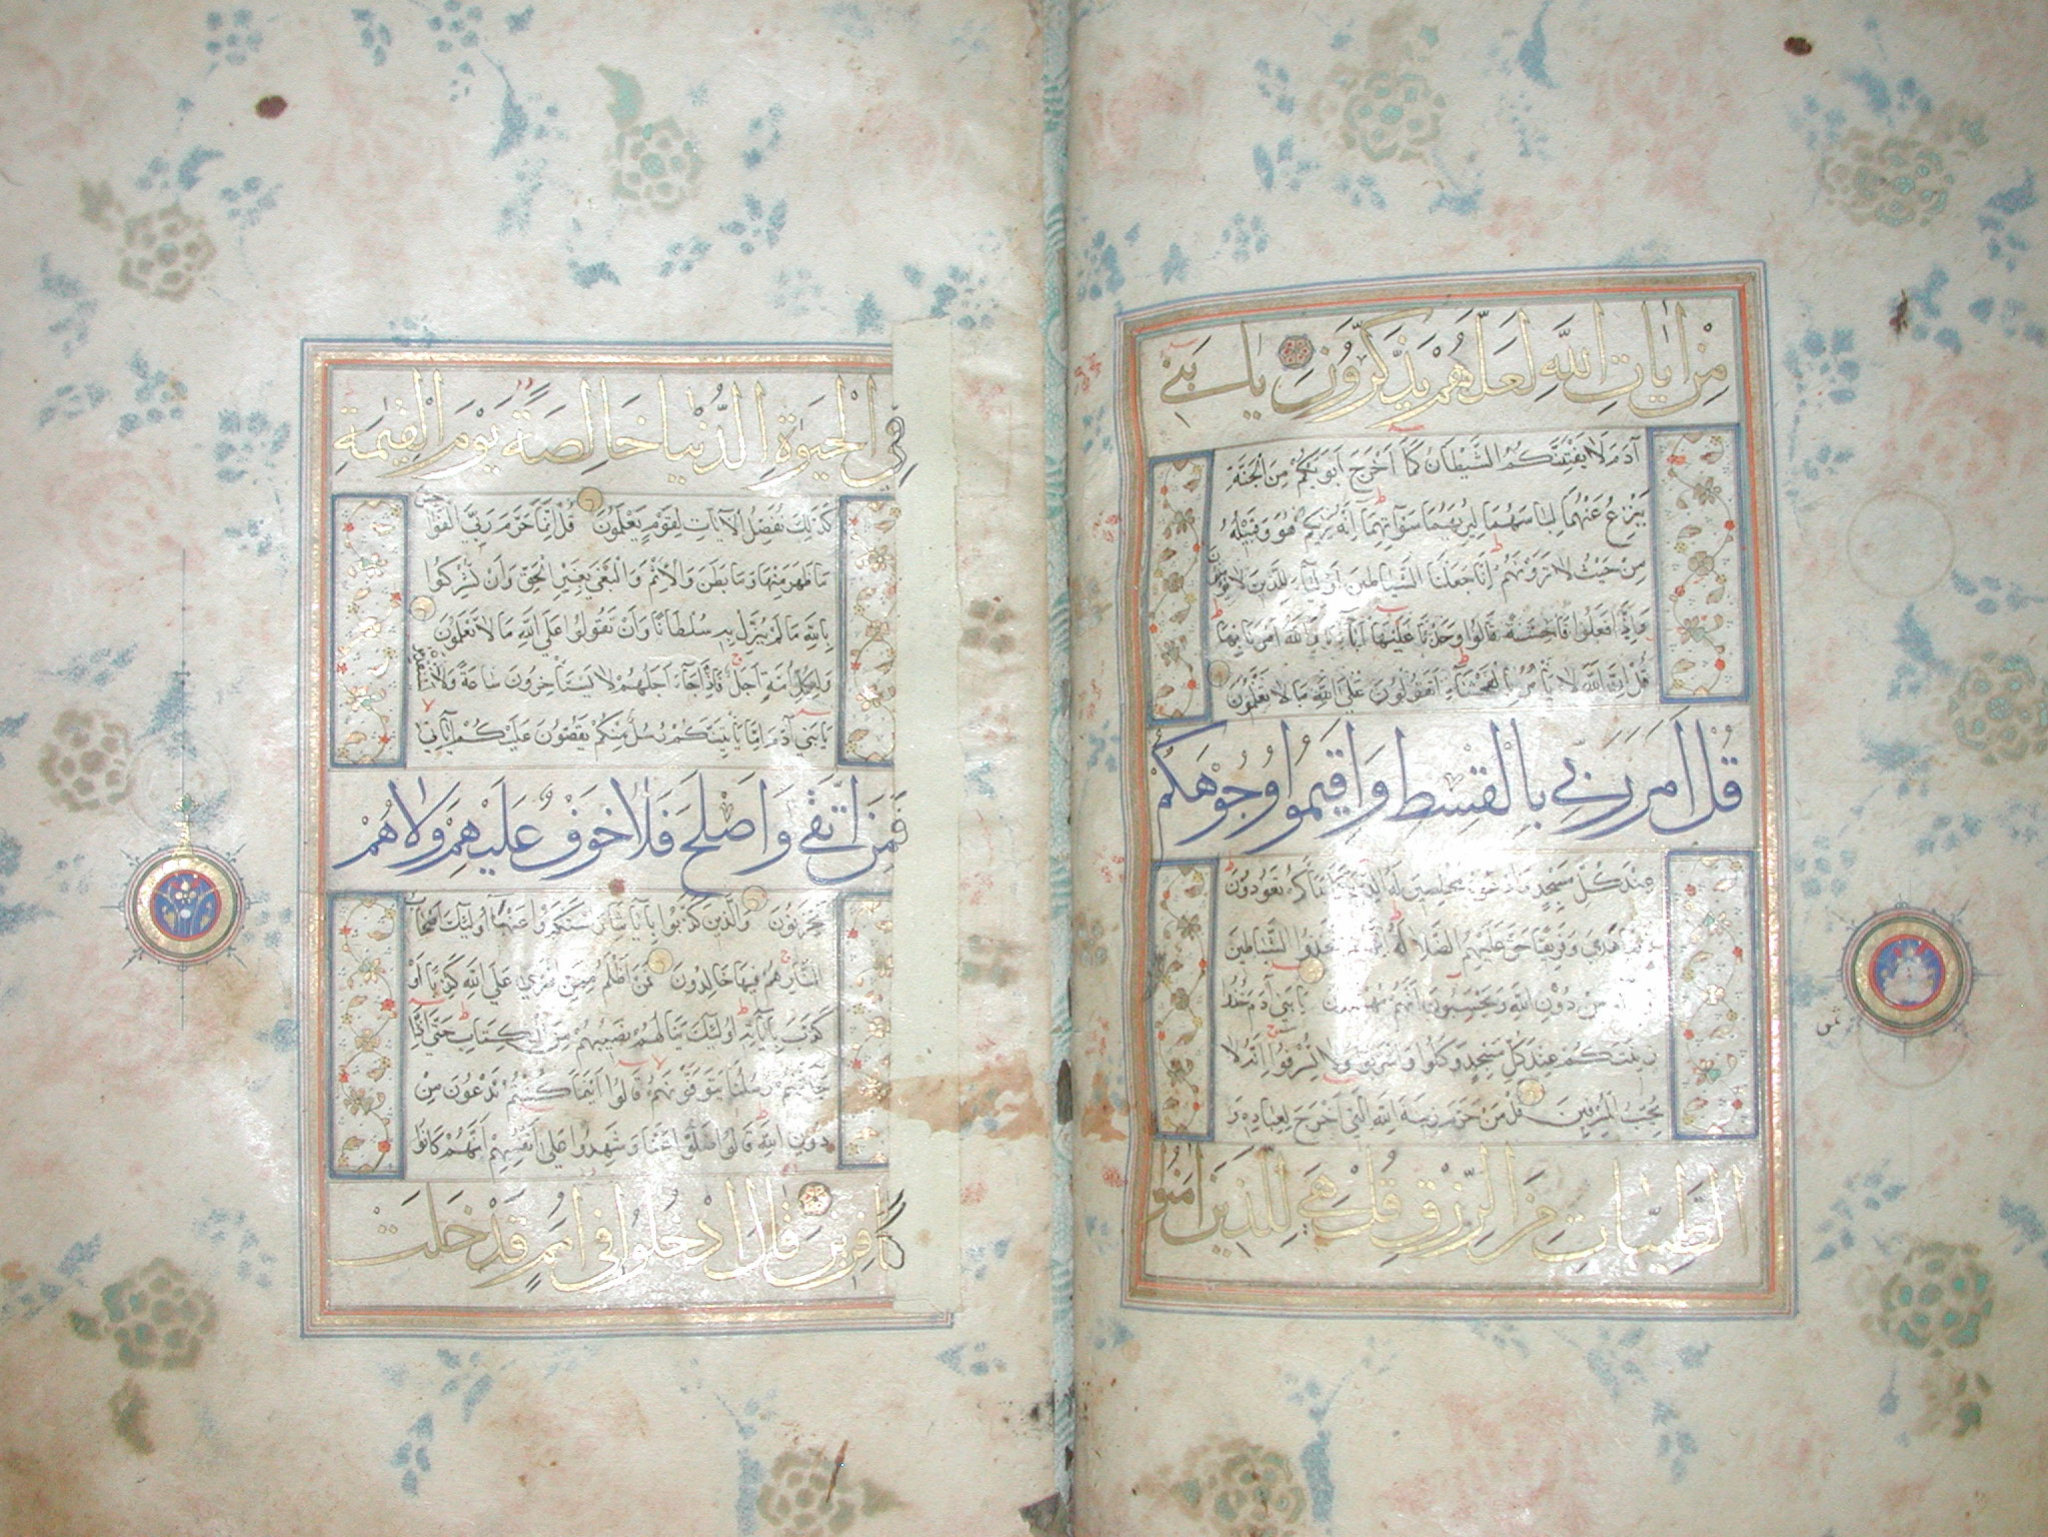 مِنْ اٰيَاتِ اللّٰهِ لَعَلَّهُمْ يَذَّكَّرُونَ يَا بَنِي
آدَمَ لَا يَفْتِنَنَّكُمُ الشَّيْطَانُ كَمَا اَخْرَجَ اَبَوَيْكُمْ مِنَ الْجَنَّةِ
يَنْزِعُ عَنْهُمَا لِبَاسَهُمَا لِيُرِيَهُمَا سَوْآتِهِمَا اِنَّهُ يَرٰيكُمْ هُوَ وَقَبِيلُهُ
مِنْ حَيْثُ لَا تَرَوْنَهُمْ اِنَّا جَعَلْنَا الشَّيَاطِينَ اَوْلِيَاءَ لِلَّذِينَ لَا يُؤْمِنُونَ
وَاِذَا فَعَلُوا فَاحِشَةً قَالُوا وَجَدْنَا عَلَيْهَا آبَاءَنَا وَاللّٰهُ اَمَرَنَا بِهَا
قُلْ اِنَّ اللّٰهَ لَا يَأْمُرُ بِالْفَحْشَاءِ اَتَقُولُونَ عَلَى اللّٰهِ مَا لَا تَعْلَمُونَ
قُلْ اَمَرَ رَبِّي بِالْقِسْطِ وَاَقِيمُوا وُجُوهَكُمْ
عِنْدَ كُلِّ مَسْجِدٍ وَادْعُوهُ مُخْلِصِينَ لَهُ تَعُودُونَ
هَدٰى وَفَرِيقًا حَقَّ عَلَيْهِمُ الضَّلَالَةُ الشَّيَاطِينَ
مِنْ دُونِ اللّٰهِ وَيَحْسَبُونَ اَنَّهُمْ مُهْتَدُونَ يَا بَنِي آدَمَ خُذُوا
زِينَتَكُمْ عِنْدَ كُلِّ مَسْجِدٍ وَكُلُوا وَاشْرَبُوا وَلَا تُسْرِفُوا اِنَّهُ لَا
يُحِبُّ الْمُسْرِفِينَ قُلْ مَنْ حَرَّمَ زِينَةَ اللّٰهِ الَّتِي اَخْرَجَ لِعِبَادِهِ وَ
الطَّيِّبَاتِ مِنَ الرِّزْقِ قُلْ هِيَ لِلَّذِينَ اٰمَنُوا
فِي الْحَيٰوةِ الدُّنْيَا خَالِصَةً يَوْمَ الْقِيٰمَةِ
كَذٰلِكَ نُفَصِّلُ الْآيَاتِ لِقَوْمٍ يَعْلَمُونَ قُلْ اِنَّمَا حَرَّمَ رَبِّيَ الْفَوَاحِشَ
مَا ظَهَرَ مِنْهَا وَمَا بَطَنَ وَالْاِثْمَ وَالْبَغْيَ بِغَيْرِ الْحَقِّ وَاَنْ تُشْرِكُوا
بِاللّٰهِ مَا لَمْ يُنَزِّلْ بِهِ سُلْطَانًا وَاَنْ تَقُولُوا عَلَى اللّٰهِ مَا لَا تَعْلَمُونَ
وَلِكُلِّ اُمَّةٍ اَجَلٌ فَاِذَا جَاءَ اَجَلُهُمْ لَا يَسْتَأْخِرُونَ سَاعَةً وَلَا يَسْتَقْدِمُونَ
يَا بَنِي آدَمَ اِمَّا يَأْتِيَنَّكُمْ رُسُلٌ مِنْكُمْ يَقُصُّونَ عَلَيْكُمْ اٰيَاتِي
فَمَنِ اتَّقٰى وَاَصْلَحَ فَلَا خَوْفٌ عَلَيْهِمْ وَلَا هُمْ
يَحْزَنُونَ وَالَّذِينَ كَذَّبُوا بِآيَاتِنَا وَاسْتَكْبَرُوا عَنْهَا اُولٰئِكَ اَصْحَابُ
النَّارِ هُمْ فِيهَا خَالِدُونَ فَمَنْ اَظْلَمُ مِمَّنِ افْتَرٰى عَلَى اللّٰهِ كَذِبًا اَوْ
كَذَّبَ بِآيَاتِهِ اُولٰئِكَ يَنَالُهُمْ نَصِيبُهُمْ مِنَ الْكِتَابِ حَتّٰى اِذَا
جَاءَتْهُمْ رُسُلُنَا يَتَوَفَّوْنَهُمْ قَالُوا اَيْنَمَا كُنْتُمْ تَدْعُونَ مِنْ
دُونِ اللّٰهِ قَالُوا ضَلُّوا عَنَّا وَشَهِدُوا عَلٰى اَنْفُسِهِمْ اَنَّهُمْ كَانُوا
كَافِرِينَ قَالَ ادْخُلُوا فِي اُمَمٍ قَدْ خَلَتْ